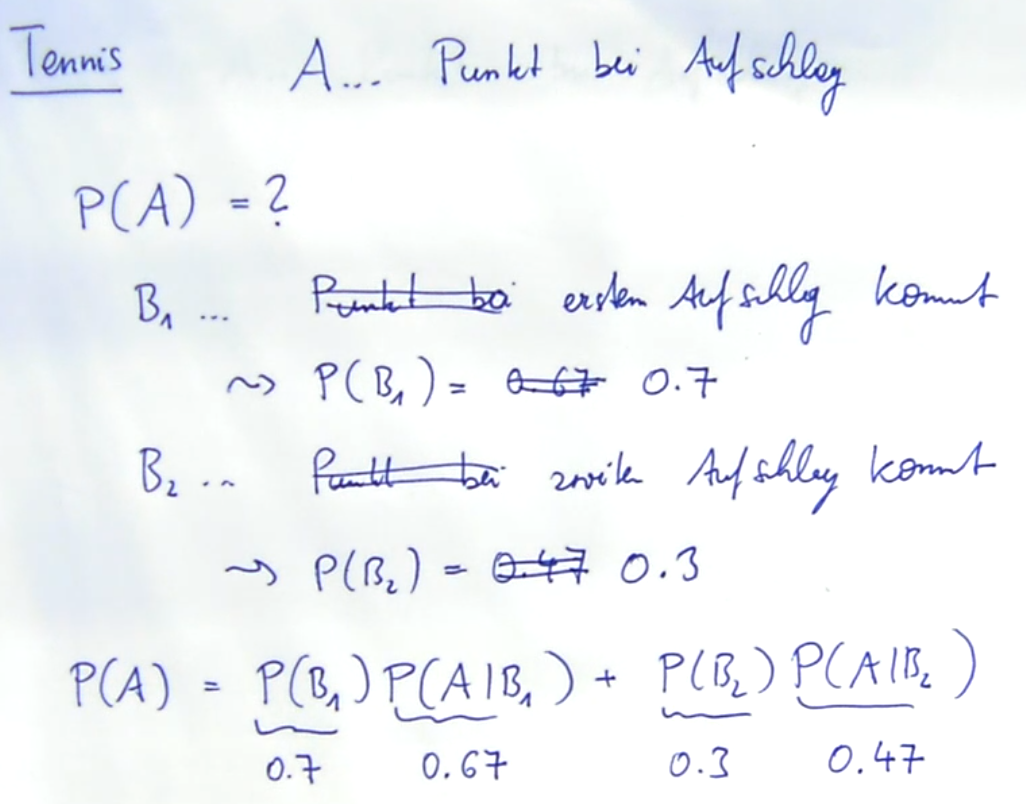 Tennis A... Punkt bei Aufschlag
P(A) = ?
B₁ ... Punkt bei ersten Aufschlag kommt
~> P(B₁) = 0.67 0.7
B₂ ... Punkt bei zweiten Aufschlag kommt
~> P(B₂) = 0.47 0.3
P(A) = P(B₁) P(A|B₁) + P(B₂) P(A|B₂)
0.7 0.67 0.3 0.47